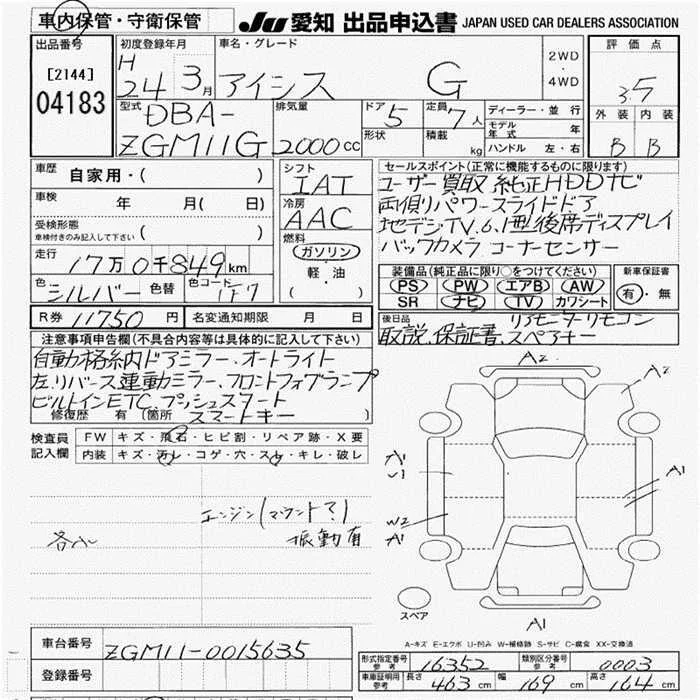 車内保管・守衛保管
JU 愛知 出品申込書 JAPAN USED CAR DEALERS ASSOCIATION
出品番号
[2144]
04183
初度登録年月
H
24 3月
車名・グレード
アイシス G
2WD
・
4WD
評価点
3.5
外装 内装
B B
型式
DBA-
ZGM11G
排気量
2000cc
ドア 5
形状
定員 7人
積載 kg
ディーラー・並行
モデル年式 年
ハンドル 左・右
車歴
自家用・( )
車検 年 月( 日)
受検形態
車検付きのみ記入して下さい ( )
走行
17万0千849km
色 シルバー 色替 色コード 1F7
シフト
IAT
冷房
AAC
燃料
ガソリン
軽・油
( )
セールスポイント(正常に機能するものに限ります)
ユーザー買取 純正HDDナビ
両側リパワースライドドア
地デジTV,6.1型後席ディスプレイ
バックカメラ コーナーセンサー
装備品(純正品に限り○をつけてください)
PS PW エアB AW
SR ナビ TV カワシート
新車保証書
有・無
R券 11750円 名変通知期限 月 日
後日品 リアモニターリモコン
取説、保証書、スペアキー
注意事項申告欄(不具合内容等は具体的に記入して下さい)
自動格納ドアミラー、オートライト
左リバース連動ミラー、フロントフォグランプ
ビルトインETC、プッシュスタート
修復歴 有 (箇所 スマートキー )
検査員
記入欄
FW キズ・飛石・ヒビ割・リペア跡・X要
内装 キズ・汚レ・コゲ・穴・スレ・キレ・破レ
エンジン(マウント?)
振動有
A2
A2
A1
A1
W2
A1
A1
スペア
A-キズ E-エクボ U-凹み W-補修跡 S-サビ C-腐食 XX-交換済
車台番号 ZGM11-0015635
登録番号
形式指定番号 参考 16352 類別区分番号 参考 0003
車車証明用 参考 長さ 463cm 幅 169cm 高さ 164cm